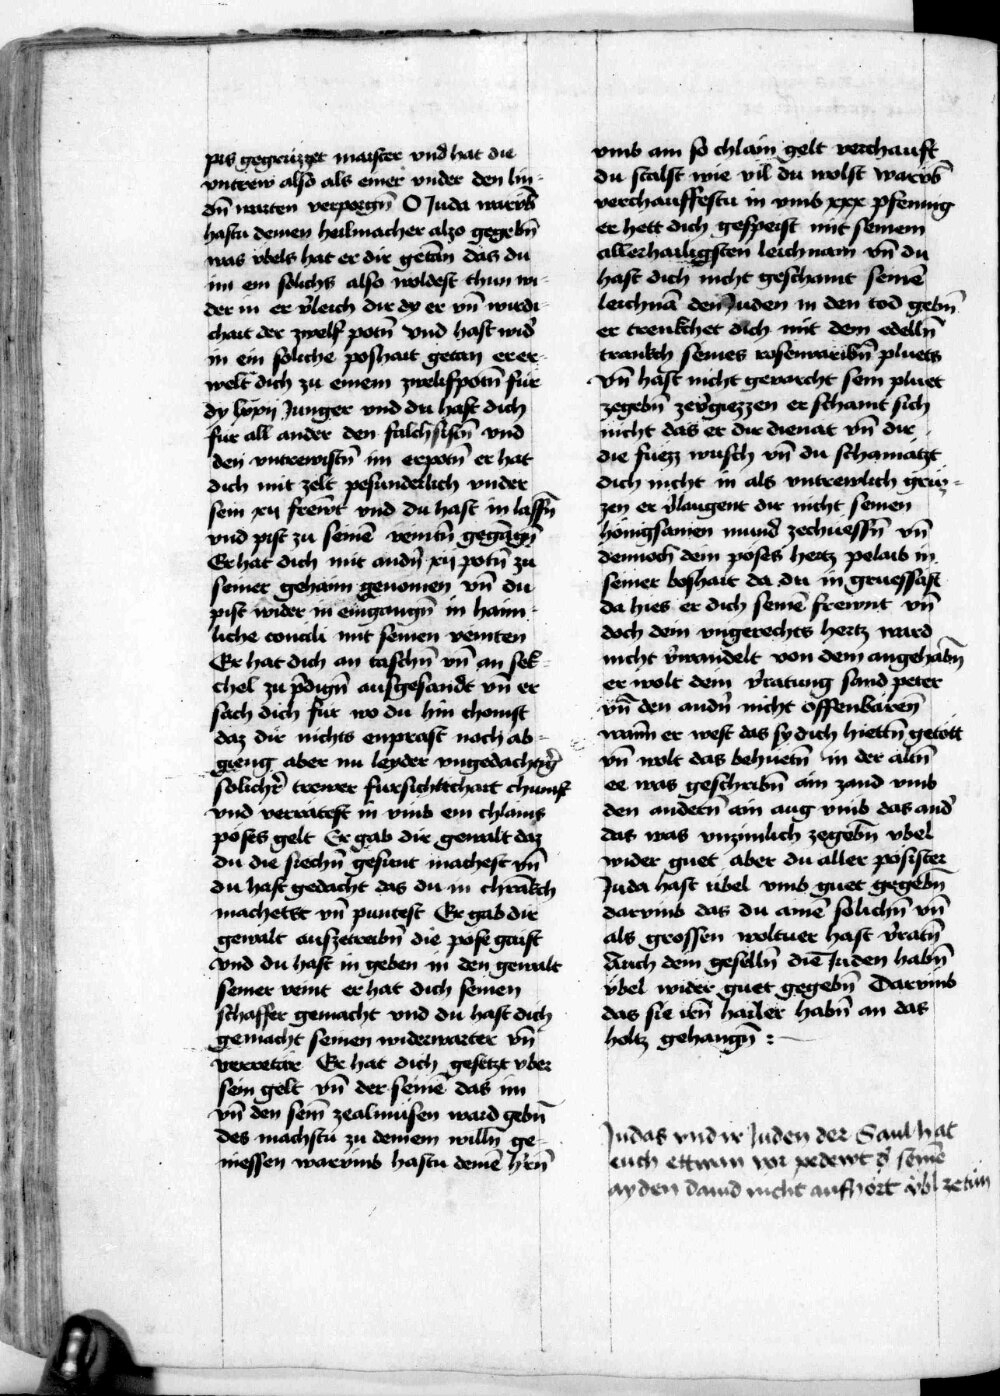 pis gegrüzzet maister vnd hat die
vntrew also als einer vnder den lin-
dn̄ warten verporgn̄ O Juda warvb̄
hastu deinen heilmacher alzo gegebn̄
was vbels hat er dir getan das du
im ein solichs also woldest thun wi-
der in er v̄leich dir dy er vn̄ wirdi-
chait der zwelf potn̄ vnd hast wid̄
in ein soliche poshait getan er er-
welt dich zu einem zwelifpotn̄ für
dy lxxij Junger vnd du hast dich
für all ander den falchsistn̄ vnd
den vntrewistn̄ im erpotn̄ er hat
dich mit zelt pesunderlich vnder
sein xij frewt vnd du hast in lassn̄
vnd pist zu seinē veintn̄ gegangn̄
Er hat dich mit andn̄ xij potn̄ zu
seiner gehaim genomen vn̄ du
pist wider in eingangn̄ in haim-
liche concili mit seinen veinten
Er hat dich an taschn̄ vn̄ an sek-
chel zu p̄dign̄ ausgesandt vn̄ er
sach dich für wo du hin chomst
daz dir nichts enprast noch ab-
gieng aber nu leyder vngedachtiḡ
solichr̄ trewer fursichttchait chumst
vnd verratest in vmb ein chlains
poses gelt Er gab dir gewalt daz
du die siechn̄ gesunt machest vn̄
du hast gedacht das du in chrākch
machetst vn̄ puntest Er gab dir
gewalt aufzetreibn̄ die pose gaist
vnd du hast in geben in den gewalt
seiner veint er hat dich seinen
schaffer gemacht vnd du hast dich
gemacht seinen widerwarter vn̄
verretär Er hat dich gesetzt vber
sein gelt vn̄ der seinē das im
vn̄ den sein̄ zealmusen ward gebn̄
des machstu zu deinem willn̄ ge-
niessen warvmb hastu deinē h̄rn̄
vmb ain so chlain gelt verchauft
du stalst wie vil du wolst warvb̄
verchauffestu in vmb xxx pfening
er hett dich gespeist mit seinem
allerhailigsten leichnam vn̄ du
hast dich nicht geschamt seinē
leichnā den Juden in den tod gebn̄
er trenkchet dich mit dem edelln̄
trankch seines rosenvaribn̄ pluets
vn̄ hast nicht gevorcht sein pluet
zegebn̄ zev̄giezzen er schamt sich
nicht das er dir dienat vn̄ dir
die füezz wusch vn̄ du schamatzt
dich nicht in als vntrewlich grüz-
zen er v̄laugent dir nicht seinen
hönigsamen mund zechuessn̄ vn̄
dennoch dein poses hertz pelaib in
seiner boshait da du in gruessast
da hies er dich seinē frewnt vn̄
doch dein vngerechts hertz ward
nicht v̄wandelt von dein angehabn̄
er wolt dein v̄ratung sand peter
vn̄ den andn̄ nicht offenbaren
wann er west das sy dich hiettn̄ getött
vn̄ wolt das behüetn̄ in der altn̄
ee was geschribn̄ ain zand vmb
den andern ain aug vmb das and̄
das was vnzimlich zegebn̄ vbel
wider guet aber du aller posister
Juda hast übel vmb guet gegebn̄
darvmb das du ainē solichn̄ vn̄
als grossen woltuer hast v̄ratn̄
Auch dein geselln̄ die Juden habn̄
vbel wider guet gegebn̄ Darvmb
das sie irn̄ hailer habn̄ an das
holtz gehangn̄ :
Judas vnd ir Juden der Saul hat
euch ettwan vor pedewt d̄ seinē
ayden dauid nicht aufhört vbl zetün